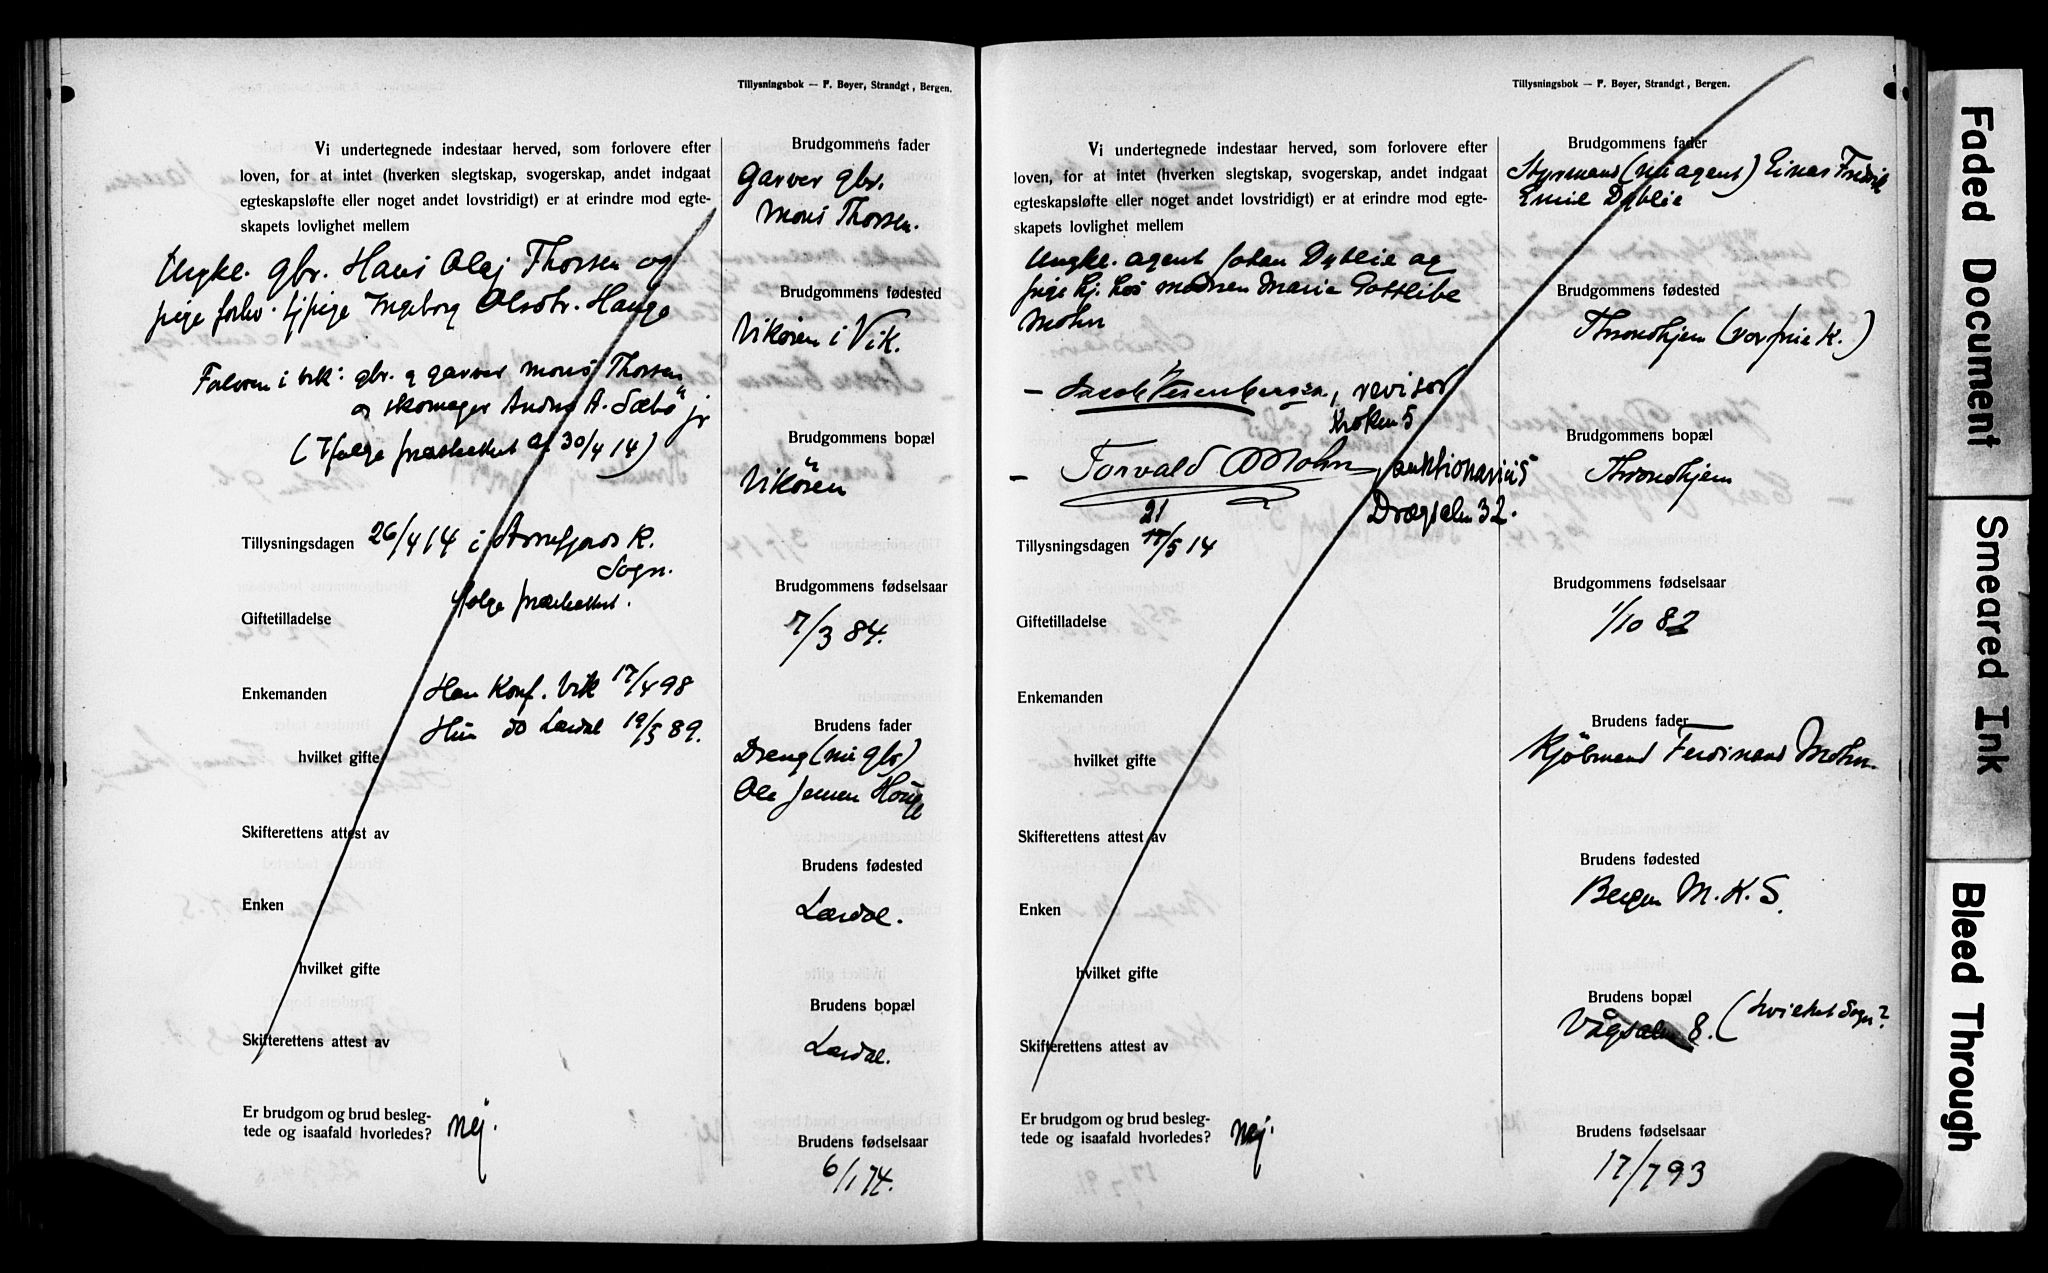 Tillysningsbok — F. Bøyer, Strandgt, Bergen.
Vi undertegnede indestaar herved, som forlovere efter
loven, for at intet (hverken slegtskap, svogerskap, andet indgaat
egteskapsløfte eller noget andet lovstridigt) er at erindre mod egte-
skapets lovlighet mellem
Ungkl. gbr. Hans Olaj Thorsen og
pige forhv. tj.pige Ingeborg Olsdtr. Hauge
Forlovere i Vik: gbr. og garver Mons Thorsen
og skomager A. Sæbø jr
(Ifølge præsteattest af 30/4 14)
Tillysningsdagen 26/4 14 i Arnefjords K.
Sogn.
ifølge præsteattest.
Giftetilladelse
Enkemanden Han Konf. Vik 17/4 98
Hun do Lærdal 19/5 89.
hvilket gifte
Skifterettens attest av
Enken
hvilket gifte
Skifterettens attest av
Er brudgom og brud besleg-
tede og isaafald hvorledes? Nej.
Brudgommens fader
Garver gbr.
Mons Thorsen.
Brudgommens fødested
Vikøren i Vik.
Brudgommens bopæl
Vikøren
Brudgommens fødselsaar
7/3 84.
Brudens fader
Dreng (nu gbr)
Ole Jensen Hauge
Brudens fødested
Lærdal.
Brudens bopæl
Lærdal.
Brudens fødselsaar
6/1 74.
Tillysningsbok — F. Bøyer, Strandgt, Bergen.
Vi undertegnede indestaar herved, som forlovere efter
loven, for at intet (hverken slegtskap, svogerskap, andet indgaat
egteskapsløfte eller noget andet lovstridigt) er at erindre mod egte-
skapets lovlighet mellem
Ungkl. agent Johan Dyblie og
pige hj. hos modren Marie Gottlibe
Mohn
— Jacob Isenbergson, revisor
Kroken 5
— Torvald Mohn, auktionarius
Drægsalm 32.
21
Tillysningsdagen 17/5 14
Giftetilladelse
Enkemanden
hvilket gifte
Skifterettens attest av
Enken
hvilket gifte
Skifterettens attest av
Er brudgom og brud besleg-
tede og isaafald hvorledes? Nej.
Brudgommens fader
Styrmand (nu agent) Einar Fredrik
Emil Dyblie
Brudgommens fødested
Throndhjem (vor frue K.)
Brudgommens bopæl
Throndhjem
Brudgommens fødselsaar
1/10 82
Brudens fader
Kjøbmand Ferdinand Mohn.
Brudens fødested
Bergen M. K. S.
Brudens bopæl
Vågsalm 8. (hvilket Sogn?
Brudens fødselsaar
17/7 93
Faded Document
Smeared Ink
Bleed Through